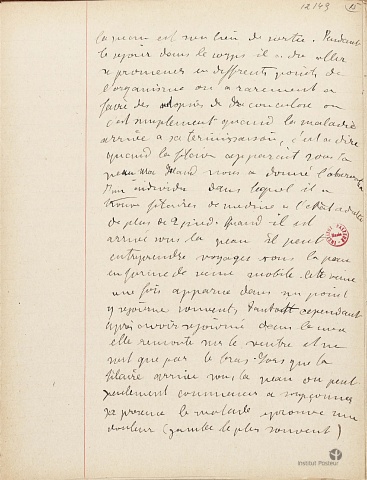 12149 15
la peau est son lieu de sortie. Pendant
le séjour dans le corps il a du aller
se promener en différents points de
l'organisme on a rarement a
faire des autopsies de dracunculose on
c'est simplement quand la maladie
arrive a sa terminaison, c'est a dire
quand la filaire apparait sous la
peau nous a donné l'observation
d'un individu dans lequel il a
trouvé filaires de médine a l'état adulte
de plus de 2 pieds. Quand il est
arrivé sous la peau il peut
entreprendre voyages sous la peau
en forme de veine mobile. cette veine
une fois apparue dans un point
y séjourne souvent, tantôt cependant
après avoir séjourné dans le
elle remonte sur le ventre et ne
sort que par le bras. Lorsque la
filaire arrive sous la peau on peut
seulement commencer a soupçonner
sa présence le malade éprouve une
douleur (jambe le plus souvent)
Institut Pasteur